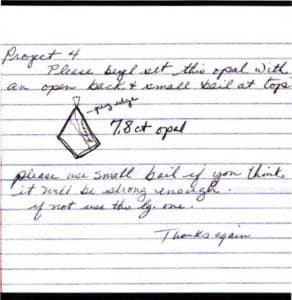 Project 4
Please bezel set this opal with
an open back & small bail at top
7.8ct opal
please use small bail if you think
it will be strong enough.
if not use the lg. one.
Thanks again